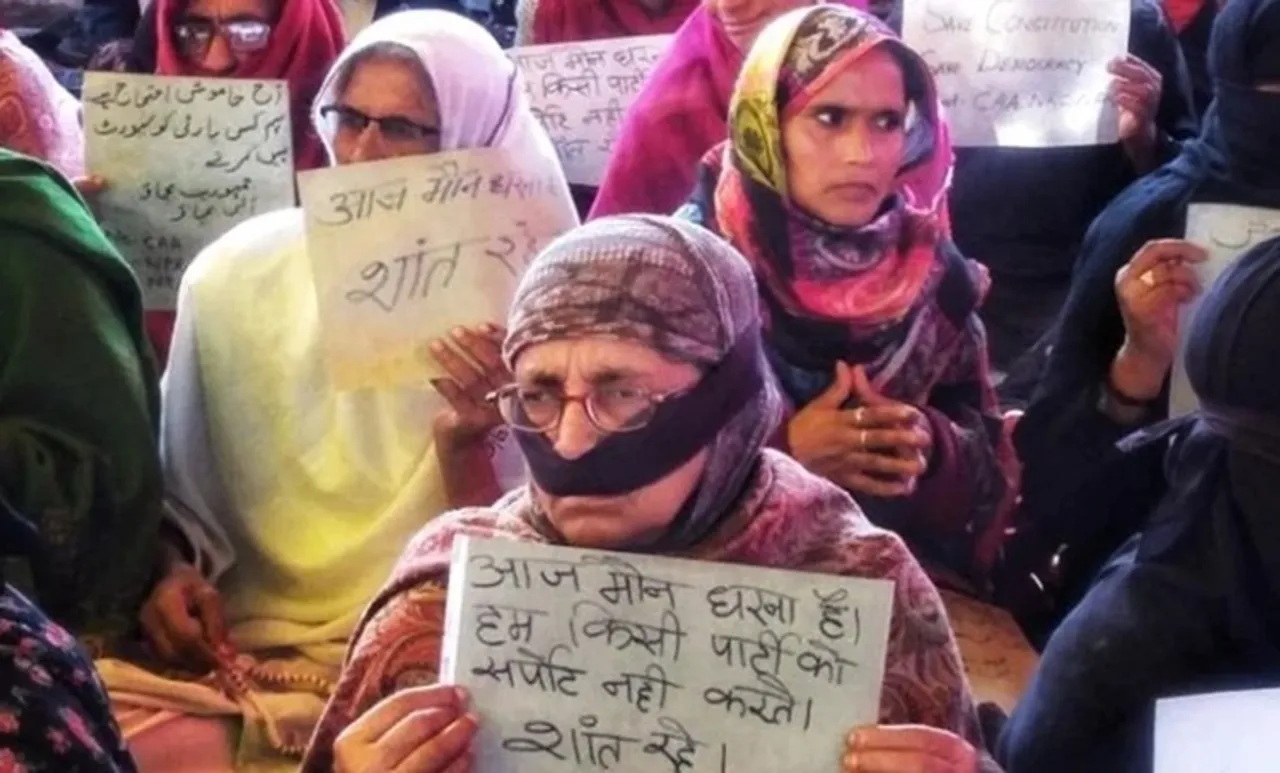 آج خاموش احتجاج ہے
ہم کسی پارٹی کو سپورٹ
نہیں کرتے
جمہوریت بچاؤ
آئین بچاؤ
CAA
NPR
आज मौन धरना
शांत रहे
आज मौन धरना
किसी पार्टी
नहीं
SAVE CONSTITUTION
SAVE DEMOCRACY
CAA
आज मौन धरना है।
हम किसी पार्टी को
सर्पोट नही करते।
शांत रहे।